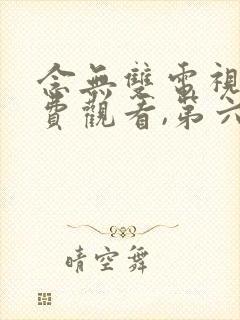 念無雙電視
費觀看,第六
晴空舞